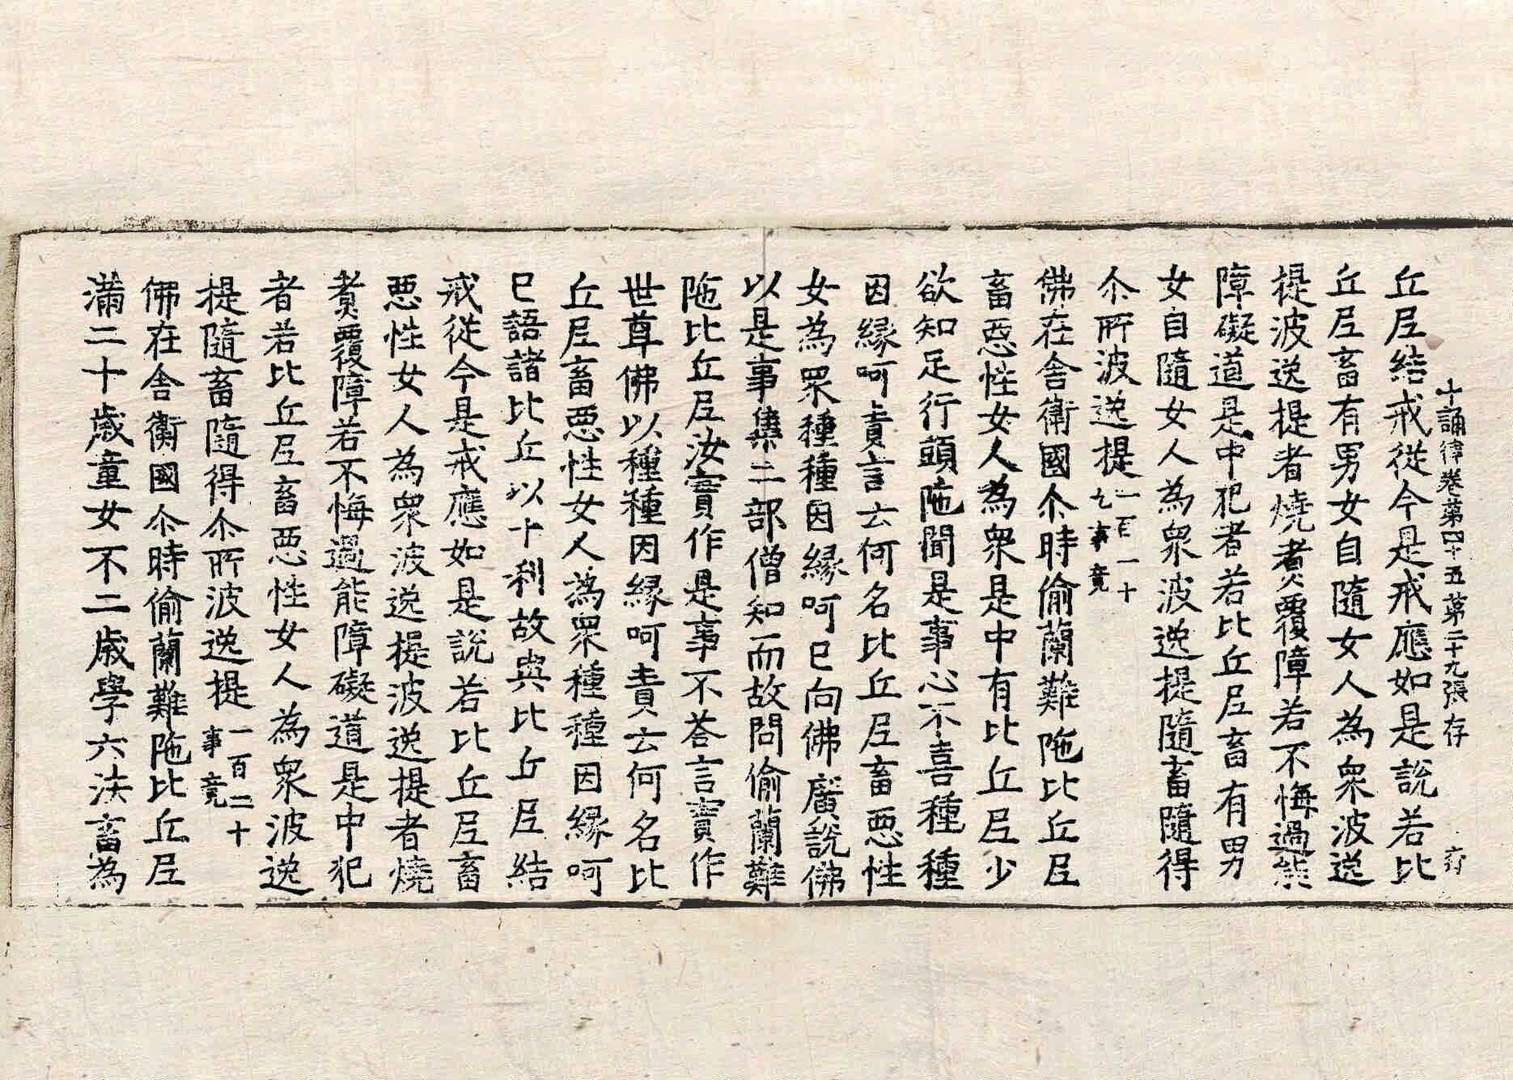 丘尼結戒從今是戒應如是說若比
十誦律卷第四十五 第二十九張 存
丘尼畜有男女自隨女人為衆波逸
提波逸提者燒煑覆障若不悔過能
障礙道是中犯者若比丘尼畜有男
女自隨女人為衆波逸提隨畜隨得
尒所波逸提一百一十
九事竟
佛在舍衛國尒時偷蘭難陁比丘尼
畜惡性女人為衆是中有比丘尼少
欲知足行頭陁聞是事心不喜種種
因縁呵責言云何名比丘尼畜惡性
女為衆種種因縁呵已向佛廣說佛
以是事集二部僧知而故問偷蘭難
陁比丘尼汝實作是事不荅言實作
世尊佛以種種因縁呵責云何名比
丘尼畜惡性女人為衆種種因縁呵
已語諸比丘以十利故與比丘尼結
戒從今是戒應如是說若比丘尼畜
惡性女人為衆波逸提波逸提者燒
煑覆障若不悔過能障礙道是中犯
者若比丘尼畜惡性女人為衆波逸
提隨畜隨得尒所波逸提一百二十
事竟
佛在舍衛國尒時偷蘭難陁比丘尼
滿二十歲童女不二歲學六法畜為